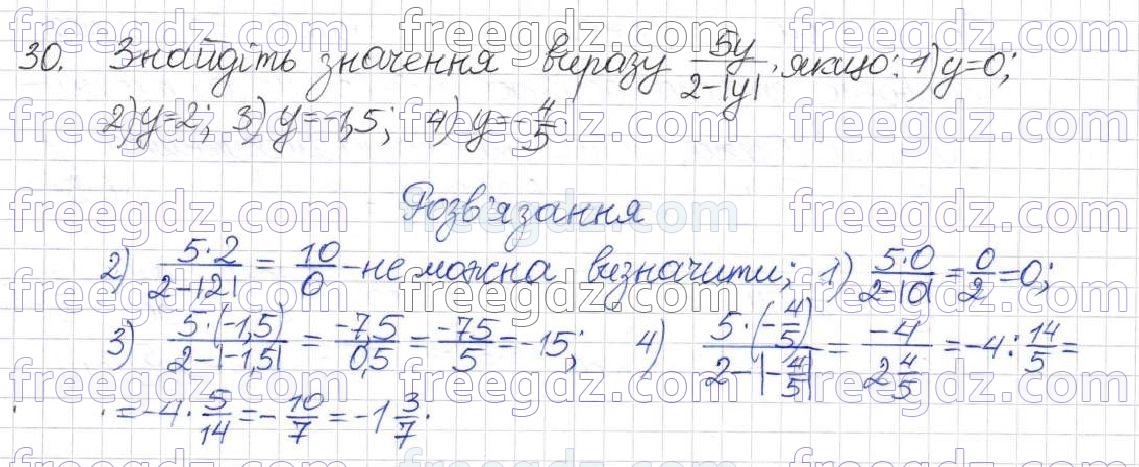 30. Знайдіть значення виразу 5y/(2-|y|), якщо: 1) y=0;
2) y=2; 3) y=-1,5; 4) y=-4/5
Розв'язання
2) (5·2)/(2-|2|) = 10/0 - не можна визначити; 1) (5·0)/(2-|0|) = 0/2 = 0;
3) (5·(-1,5))/(2-|-1,5|) = -7,5/0,5 = -75/5 = -15; 4) (5·(-4/5))/(2-|-4/5|) = -4/(2 4/5) = -4 : 14/5 =
= -4 · 5/14 = -10/7 = -1 3/7.
freegdz.com